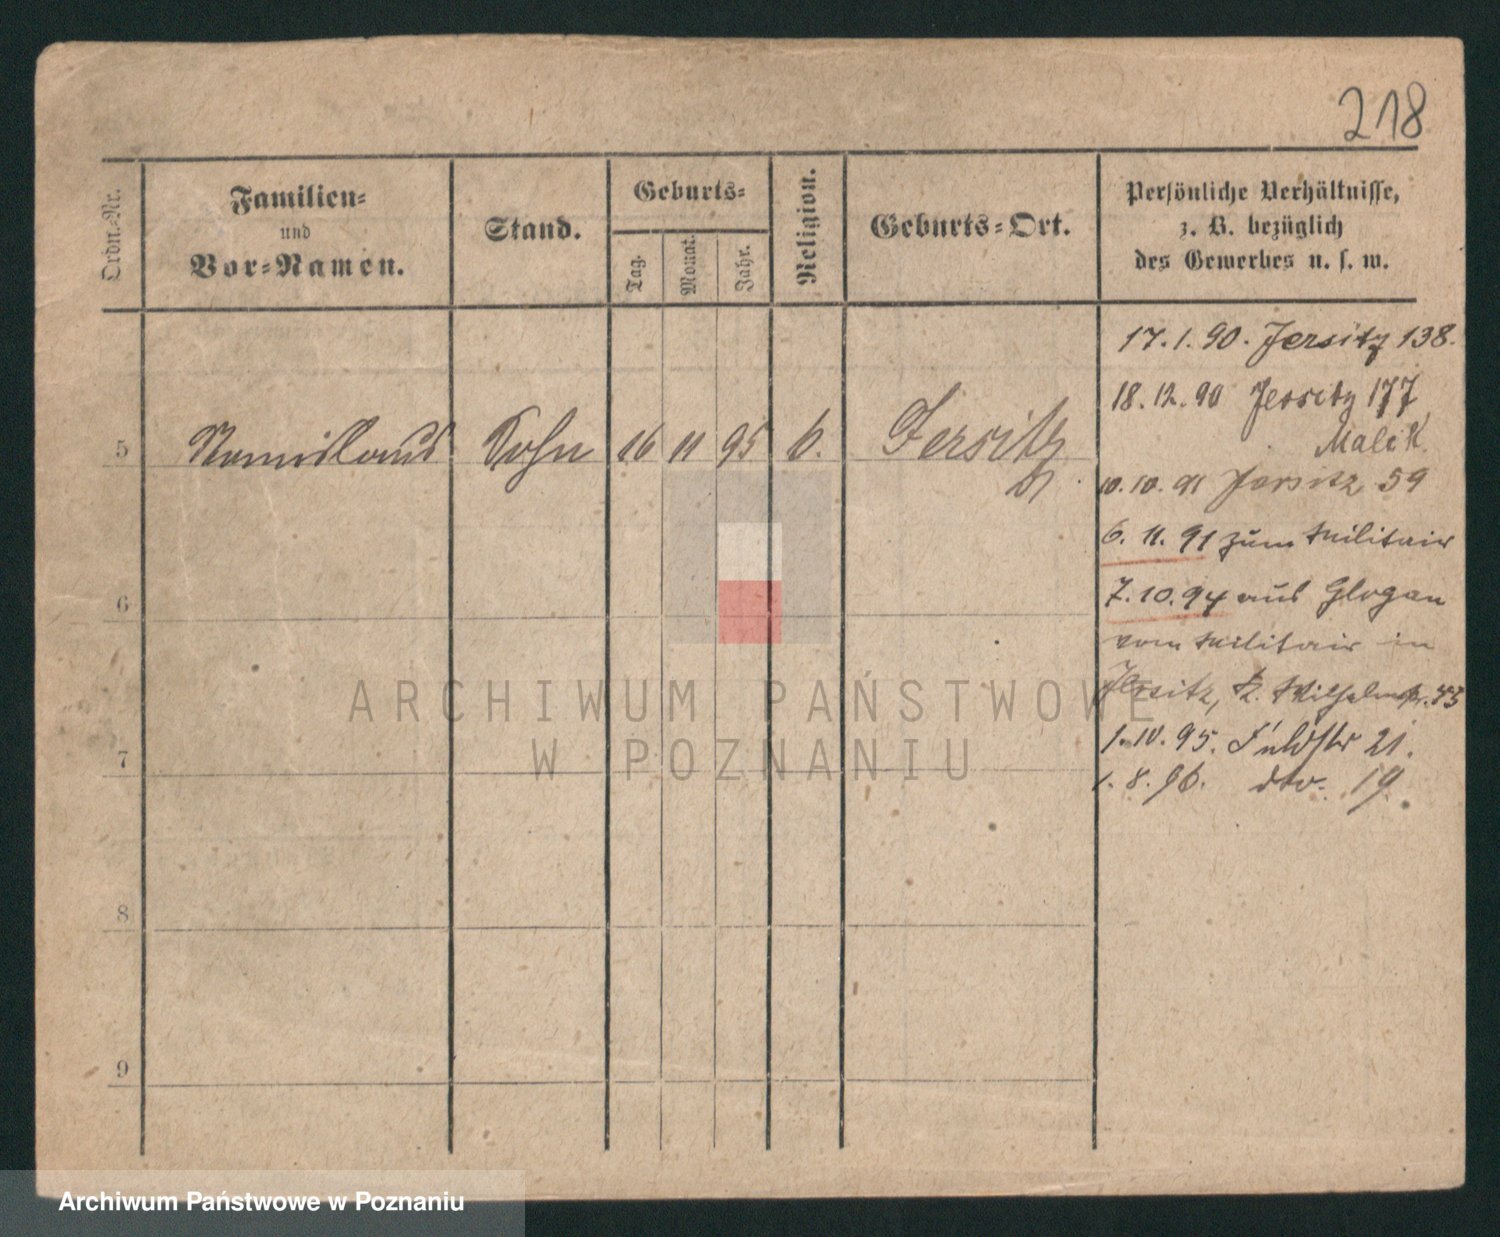 218
Ordn.-Nr.
Familien-
und
Vor-Namen.
Stand.
Geburts-
Tag.
Monat.
Jahr.
Religion.
Geburts-Ort.
Persönliche Verhältnisse,
z. B. bezüglich
des Gewerbes u. s. w.
17.1.90. Jersitz 138.
18.12.90 Jersitz 177
Malek
5 Sohn 16 11 95 Jersitz
10.10.91 Jersitz 59
6.11.91 zum Militair
6
7.10.94 aus Glogau
vom Militair in
Jersitz, Wilhelmstr.
7
1.10.95. Feldstr 21.
1.8.96. dto. 19.
8
9
ARCHIWUM PAŃSTWOWE
W POZNANIU
Archiwum Państwowe w Poznaniu